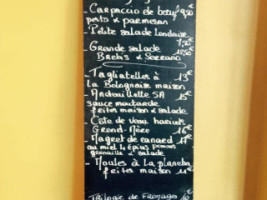 Carpaccio de bœuf 9,50
pesto & parmesan
Petite salade Landaise
7,50
Grande salade 15€
Brebis & Serrano
- Tagliatelles à 13€
la Bolognaise maison
- Andouillette 5A 15€
sauce moutarde
frites maison & salade
- Côte de veau haricots
Grand-Mère 16€
- Magret de canard 17€
au miel 4 épices pommes
grenaille & salade
- Moules à la plancha
frites maison 11€
Trilogie de Fromages